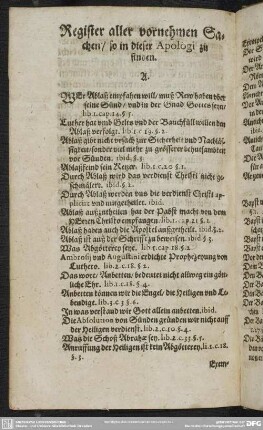 Register aller vornehmen Sa-
chen / so in dieser Apologi zu
finden.
A.
WEr Ablaß empfahen will / muß Rew haben vber
seine Sünd / vnd in der Gnad Gottes seyn /
lib.1.cap.14.§.5.
Luther hat vmb Gelts vnd der Bauchfüll willen den
Ablaß verfolgt. lib.1.c.19.§.2.
Ablaß gibt nicht vrsach zur Sicherheit vnd Nachläs-
sigkeit sonder viel mehr zu grösserer behutsamkeit
vor Sünden. ibid.§.
Ablaßfeind sein Ketzer. lib.1.c.20.§.1.
Durch Ablaß wird das verdienst Christi nicht ge-
schmälert. ibid.§.2.
Durch Ablaß werden vns die verdienst Christi ap-
plicirt vnd mitgetheilet. ibid.
Ablaß außzutheilen hat der Papst macht von dem
HErren Christo empfangen. lib.1.c.21.§.1.
Ablaß haben auch die Apostel außgetheilt. ibid.§.2.
Ablaß ist auß der Schrifft zu beweisen. ibid.§.3.
Was Abgötterey sey. lib.5.cap.18.§.2.
Ambrosij vnd Augustini erdichte Prophezeyung von
Luthero. lib.2.c.18.§.2.
Das wort / Anbetten / bedeutet nicht allweg ein gött-
liche Ehr. lib.2.c.18.§.4.
Anbetten können wir die Engel / die Heiligen vnd Le-
bendige. lib.5.c.3.§.6.
In was verstand wir Gott allein anbetten. ibid.
Die Absolution von Sünden gründen wir nicht auff
der Heiligen verdienst. lib.2.c.10.§.4.
Was die Schoß Abrahæ sey. lib.2.c.33.§.5.
Anruffung der Heiligen ist kein Abgötterey. li.2.c.18.
§.3.